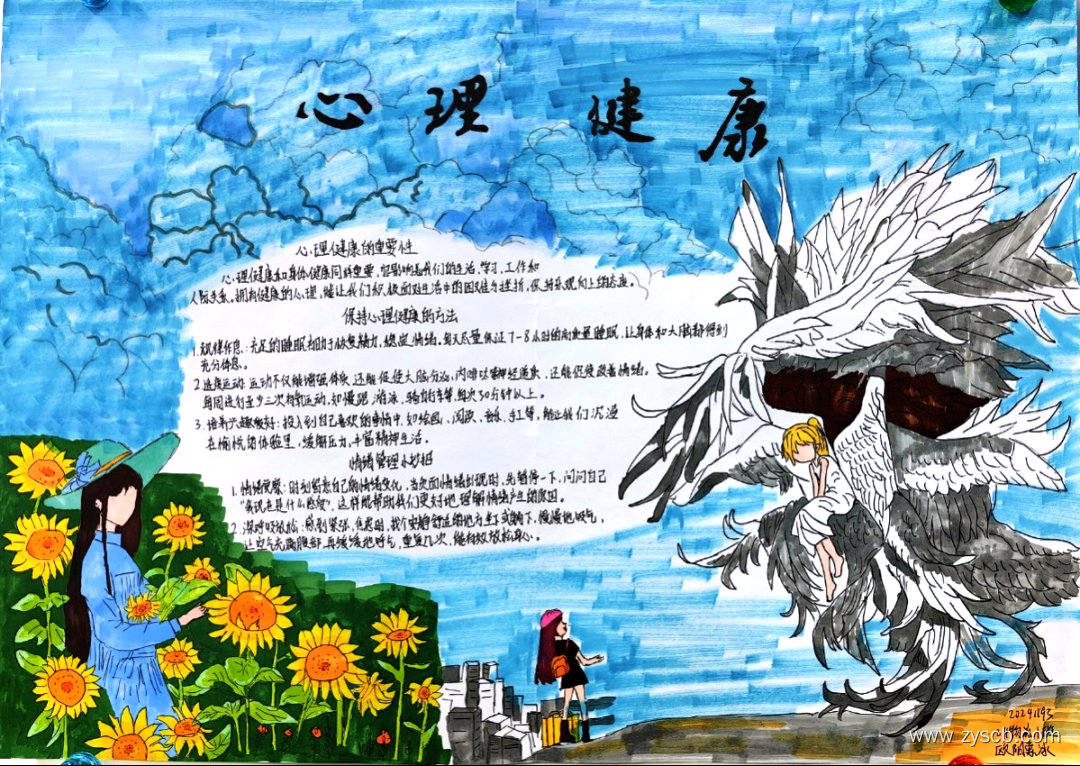 心理健康
心理健康的重要性
心理健康和身体健康同样重要，它影响着我们的生活、学习、工作和
人际关系。拥有健康的心理，能让我们积极面对生活中的困难与挫折，保持乐观向上的态度。
保持心理健康的方法
1.规律作息：充足的睡眠有助于恢复精力，稳定情绪。每天尽量保证7-8小时的高质量睡眠，让身体和大脑都得到
充分休息。
2.适度运动：运动不仅能增强体质，还能促使大脑分泌内啡肽等神经递质，还能促使改善情绪。
每周进行至少三次有氧运动，如慢跑、游泳、骑自行车等，每次30分钟以上。
3.培养兴趣爱好：投入到自己喜欢的事情中，如绘画、阅读、音乐、手工等，能让我们沉浸
在愉悦的体验里，缓解压力，丰富精神生活。
情绪管理小妙招
1.情绪觉察：时刻留意自己的情绪变化，当负面情绪出现时，先暂停一下，问问自己
“我现在是什么感受”，这样能帮助我们更好地理解情绪产生的原因。
2.深呼吸放松：感到紧张、焦虑时，找个安静舒适的地方坐下或躺下，慢慢地吸气，
让空气充满腹部，再缓缓地呼气，重复几次，能有效放松身心。
2024193
欧阳
www.zyscb.com